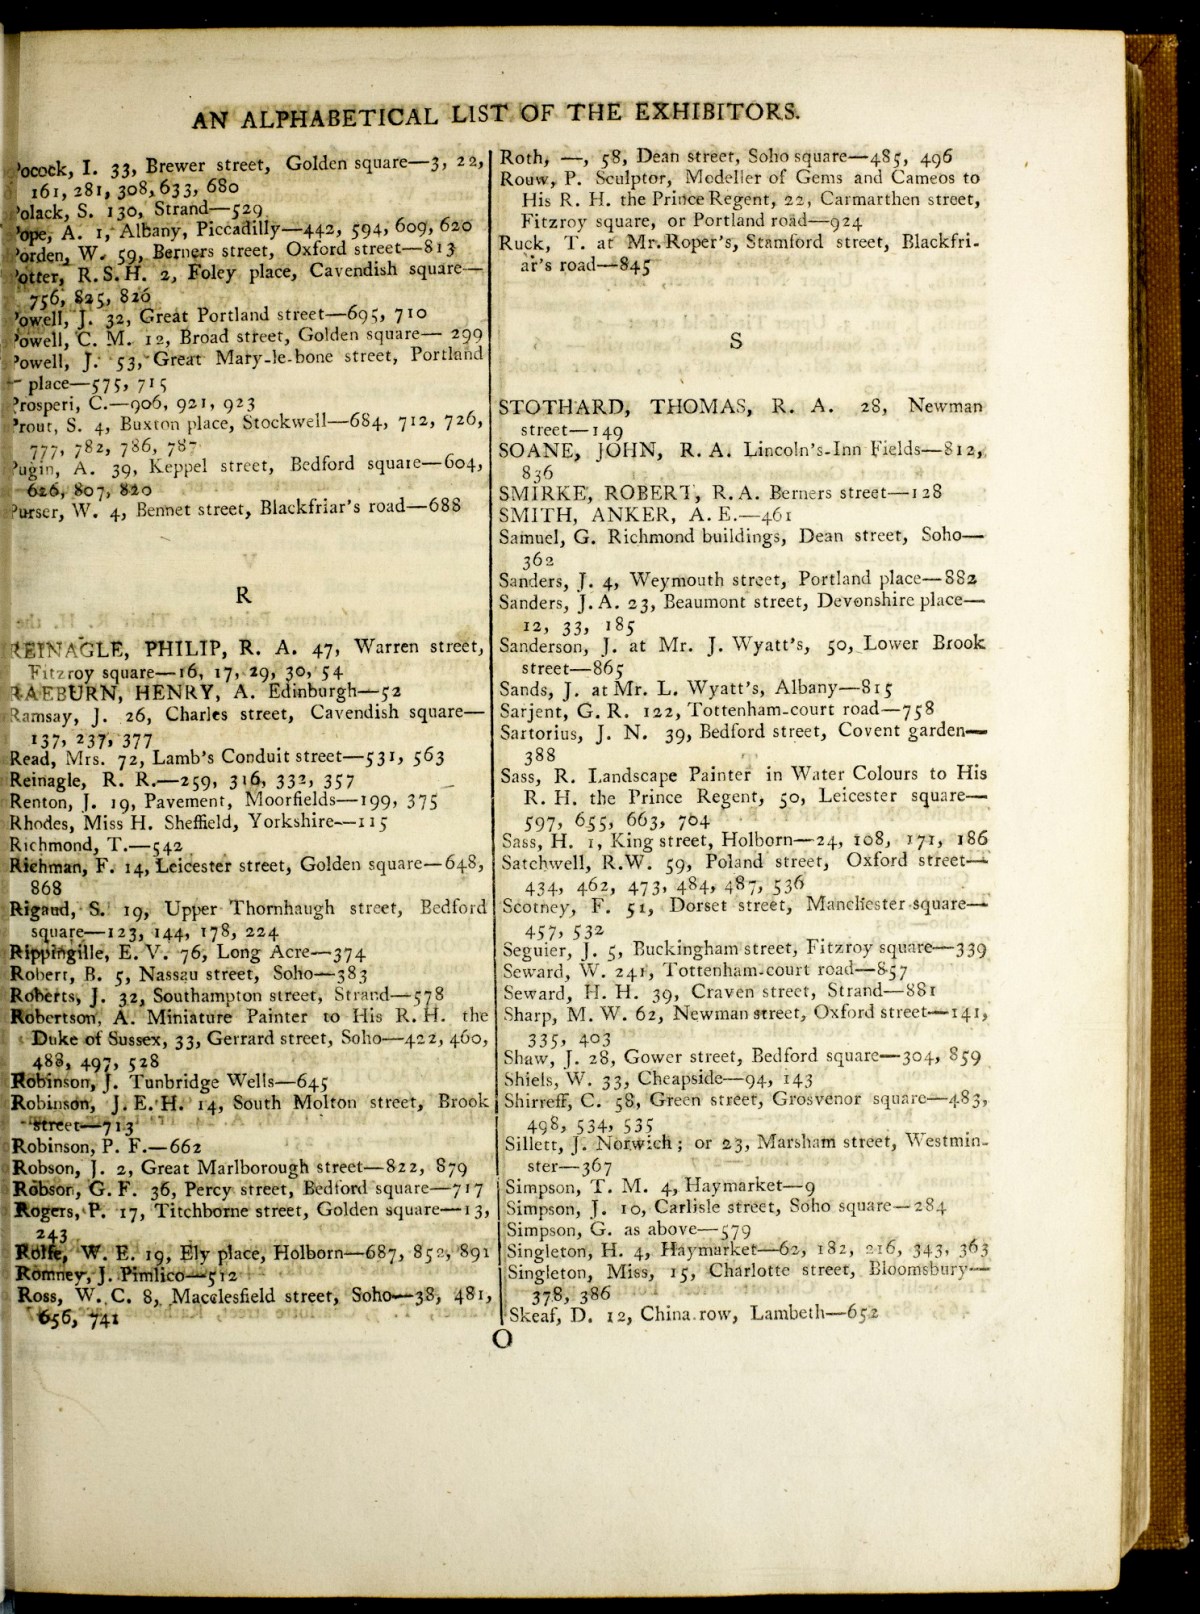 AN ALPHABETICAL LIST OF THE EXHIBITORS.
Pocock, I. 33, Brewer street, Golden square—3, 22,
161, 281, 308, 633, 680
Polack, S. 130, Strand—529
Pope, A. 1, Albany, Piccadilly—442, 594, 609, 620
Porden, W. 59, Berners street, Oxford street—813
Potter, R. S. H. 2, Foley place, Cavendish square—
756, 825, 826
Powell, J. 32, Great Portland street—695, 710
Powell, C. M. 12, Broad street, Golden square— 299
Powell, J. 53, Great Mary-le-bone street, Portland
place—575, 715
Prosperi, C.—906, 921, 923
Prout, S. 4, Buxton place, Stockwell—684, 712, 726,
777, 782, 786, 787
Pugin, A. 39, Keppel street, Bedford square—604,
626, 807, 820
Purser, W. 4, Bennet street, Blackfriar's road—688
R
REINAGLE, PHILIP, R. A. 47, Warren street,
Fitzroy square—16, 17, 29, 30, 54
RAEBURN, HENRY, A. Edinburgh—52
Ramsay, J. 26, Charles street, Cavendish square—
137, 237, 377
Read, Mrs. 72, Lamb's Conduit street—531, 563
Reinagle, R. R.—259, 316, 332, 357
Renton, J. 19, Pavement, Moorfields—199, 375
Rhodes, Miss H. Sheffield, Yorkshire—115
Richmond, T.—542
Richman, F. 14, Leicester street, Golden square—648,
868
Rigaud, S. 19, Upper Thornhaugh street, Bedford
square—123, 144, 178, 224
Rippingille, E. V. 76, Long Acre—374
Robert, B. 5, Nassau street, Soho—383
Roberts, J. 32, Southampton street, Strand—578
Robertson, A. Miniature Painter to His R. H. the
Duke of Sussex, 33, Gerrard street, Soho—422, 460,
488, 497, 528
Robinson, J. Tunbridge Wells—645
Robinson, J. E. H. 14, South Molton street, Brook
street—713
Robinson, P. F.—662
Robson, J. 2, Great Marlborough street—822, 879
Robson, G. F. 36, Percy street, Bedford square—717
Rogers, P. 17, Titchborne street, Golden square—13,
243
Rolfe, W. E. 19, Ely place, Holborn—687, 852, 891
Romney, J. Pimlico—512
Ross, W. C. 8, Macclesfield street, Soho—38, 481,
656, 741
Roth, —, 58, Dean street, Soho square—485, 496
Rouw, P. Sculptor, Modeller of Gems and Cameos to
His R. H. the Prince Regent, 22, Carmarthen street,
Fitzroy square, or Portland road—924
Ruck, T. at Mr. Roper's, Stamford street, Blackfri-
ar's road—845
S
STOTHARD, THOMAS, R. A. 28, Newman
street—149
SOANE, JOHN, R. A. Lincoln's-Inn Fields—812,
836
SMIRKE, ROBERT, R. A. Berners street—128
SMITH, ANKER, A. E.—461
Samuel, G. Richmond buildings, Dean street, Soho—
362
Sanders, J. 4, Weymouth street, Portland place—882
Sanders, J. A. 23, Beaumont street, Devonshire place—
12, 33, 185
Sanderson, J. at Mr. J. Wyatt's, 50, Lower Brook
street—865
Sands, J. at Mr. L. Wyatt's, Albany—815
Sarjent, G. R. 122, Tottenham-court road—758
Sartorius, J. N. 39, Bedford street, Covent garden—
388
Sass, R. Landscape Painter in Water Colours to His
R. H. the Prince Regent, 50, Leicester square—
597, 655, 663, 704
Sass, H. 1, King street, Holborn—24, 108, 171, 186
Satchwell, R. W. 59, Poland street, Oxford street—
434, 462, 473, 484, 487, 536
Scotney, F. 51, Dorset street, Manchester square—
457, 532
Seguier, J. 5, Buckingham street, Fitzroy square—339
Seward, W. 241, Tottenham-court road—857
Seward, H. H. 39, Craven street, Strand—881
Sharp, M. W. 62, Newman street, Oxford street—141,
335, 403
Shaw, J. 28, Gower street, Bedford square—304, 859
Shiels, W. 33, Cheapside—94, 143
Shirreff, C. 58, Green street, Grosvenor square—483,
498, 534, 535
Sillett, J. Norwich; or 23, Marsham street, Westmin-
ster—367
Simpson, T. M. 4, Haymarket—9
Simpson, J. 10, Carlisle street, Soho square—284
Simpson, G. as above—579
Singleton, H. 4, Haymarket—62, 182, 216, 343, 363
Singleton, Miss, 15, Charlotte street, Bloomsbury—
378, 386
Skeaf, D. 12, China row, Lambeth—652
O